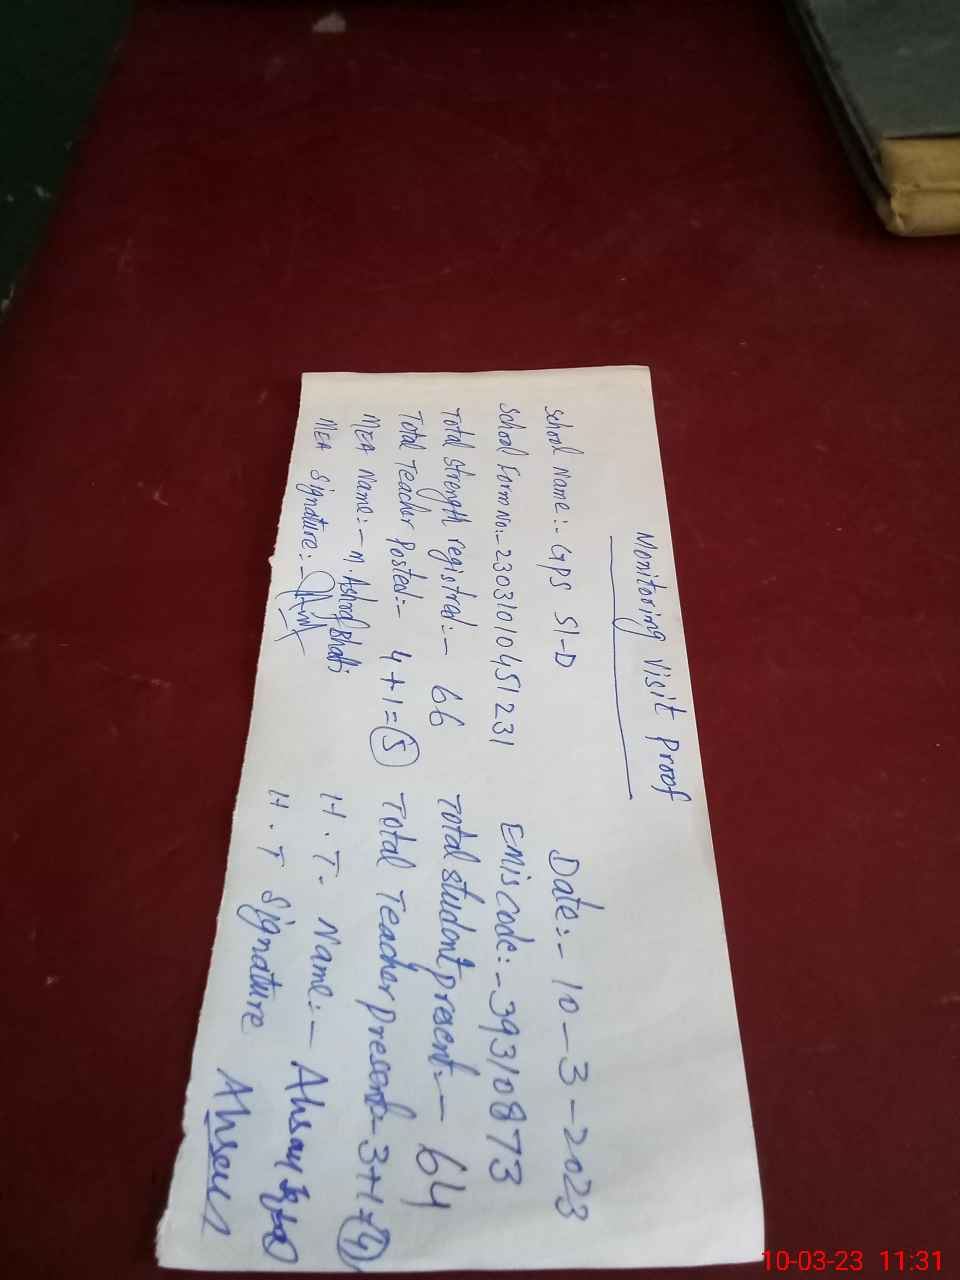 Monitoring Visit Proof
School Name:- GPS 51-D Date:- 10-3-2023
School Form No:- 23031010451231 EMIS Code:- 39310873
Total Strength registred:- 66 Total student present:- 64
Total Teacher Posted:- 4+1=5 Total Teacher present- 3+1=4
MEA Name:- M. Ashraf Bhatti H.T. Name:- Ahsan Iqbal
MEA Signature:- H.T Signature Ahsan
10-03-23 11:31